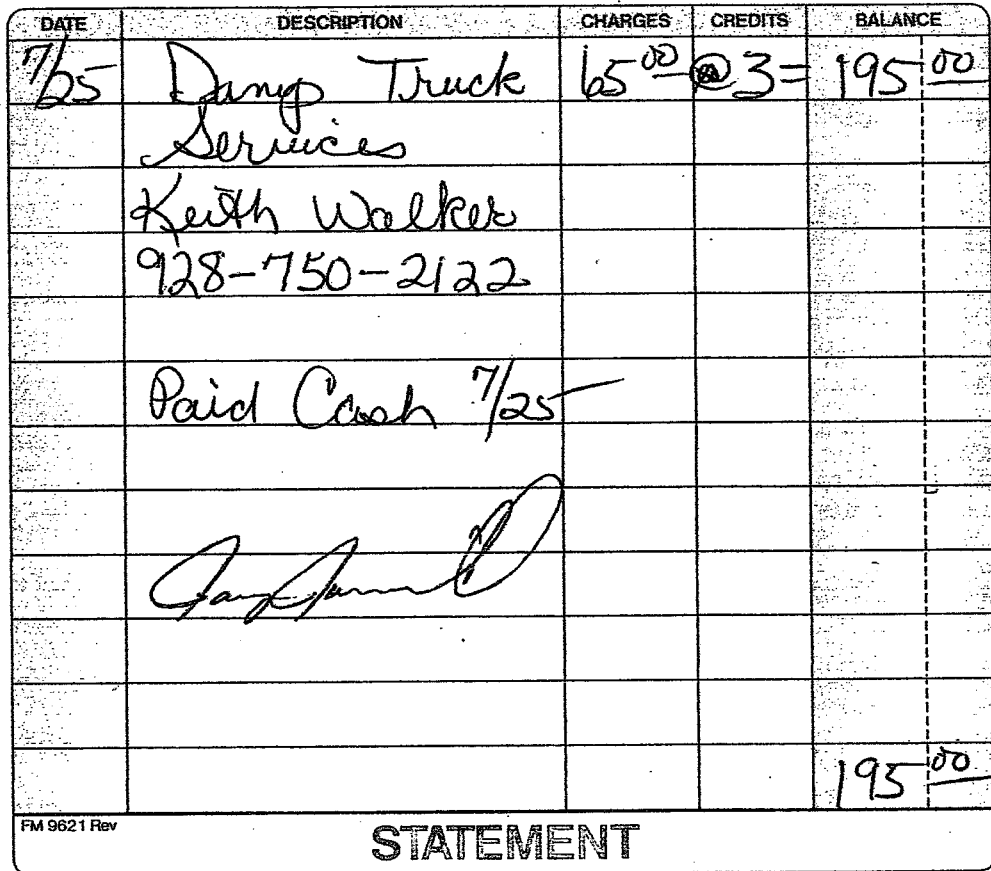 DATE DESCRIPTION CHARGES CREDITS BALANCE
7/25 Dump Truck 65 00 @ 3 = 195 00
Services
Keith Walker
928-750-2122
Paid Cash 7/25
195 00
FM 9621 Rev
STATEMENT